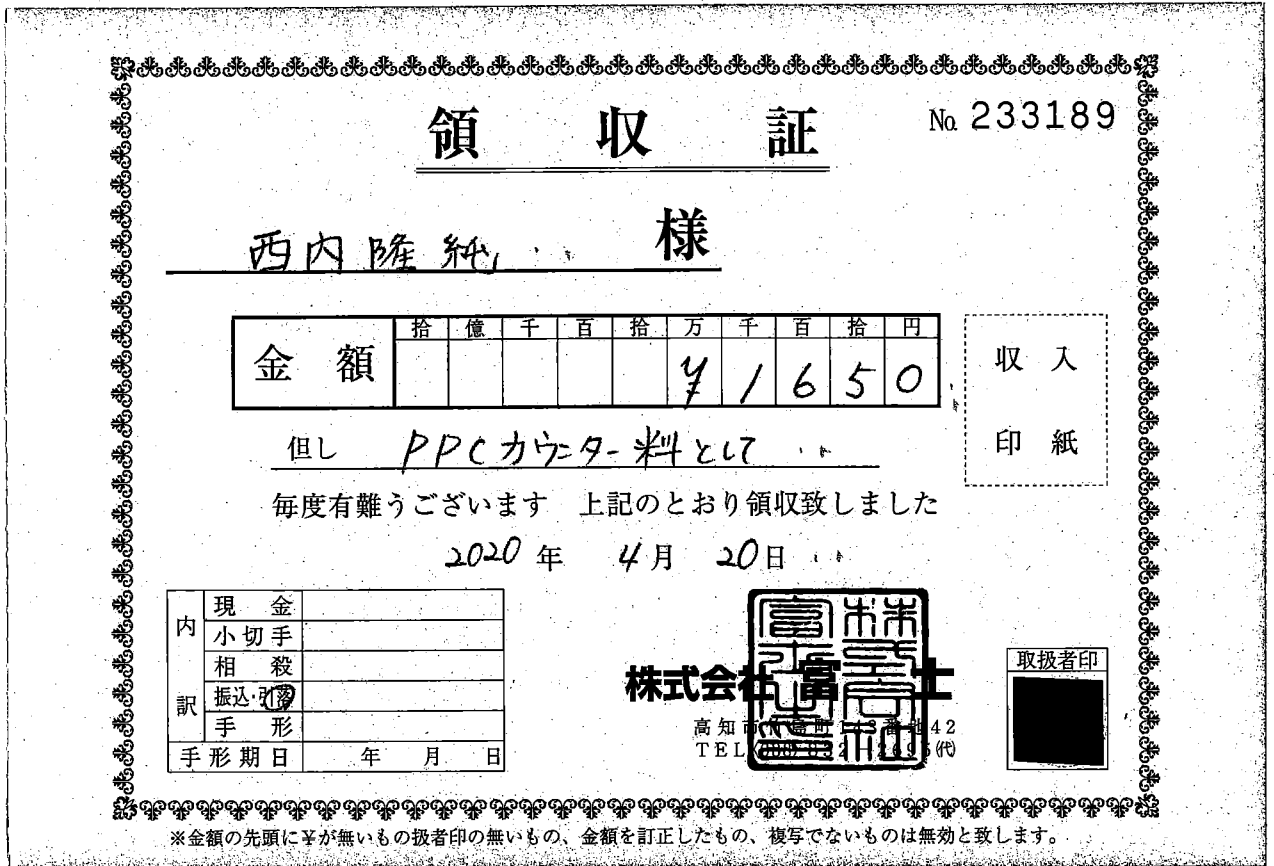 領収証
No. 233189
西内隆純 様
拾 億 千 百 拾 万 千 百 拾 円
金額 ¥1650
収入
印紙
但し PPCカウンター料として
毎度有難うございます 上記のとおり領収致しました
2020年 4月 20日
内訳
現金
小切手
相殺
振込・引落
手形
手形期日 年 月 日
株式会社 富士
高知市
TEL
取扱者印
※金額の先頭に¥が無いもの扱者印の無いもの、金額を訂正したもの、複写でないものは無効と致します。